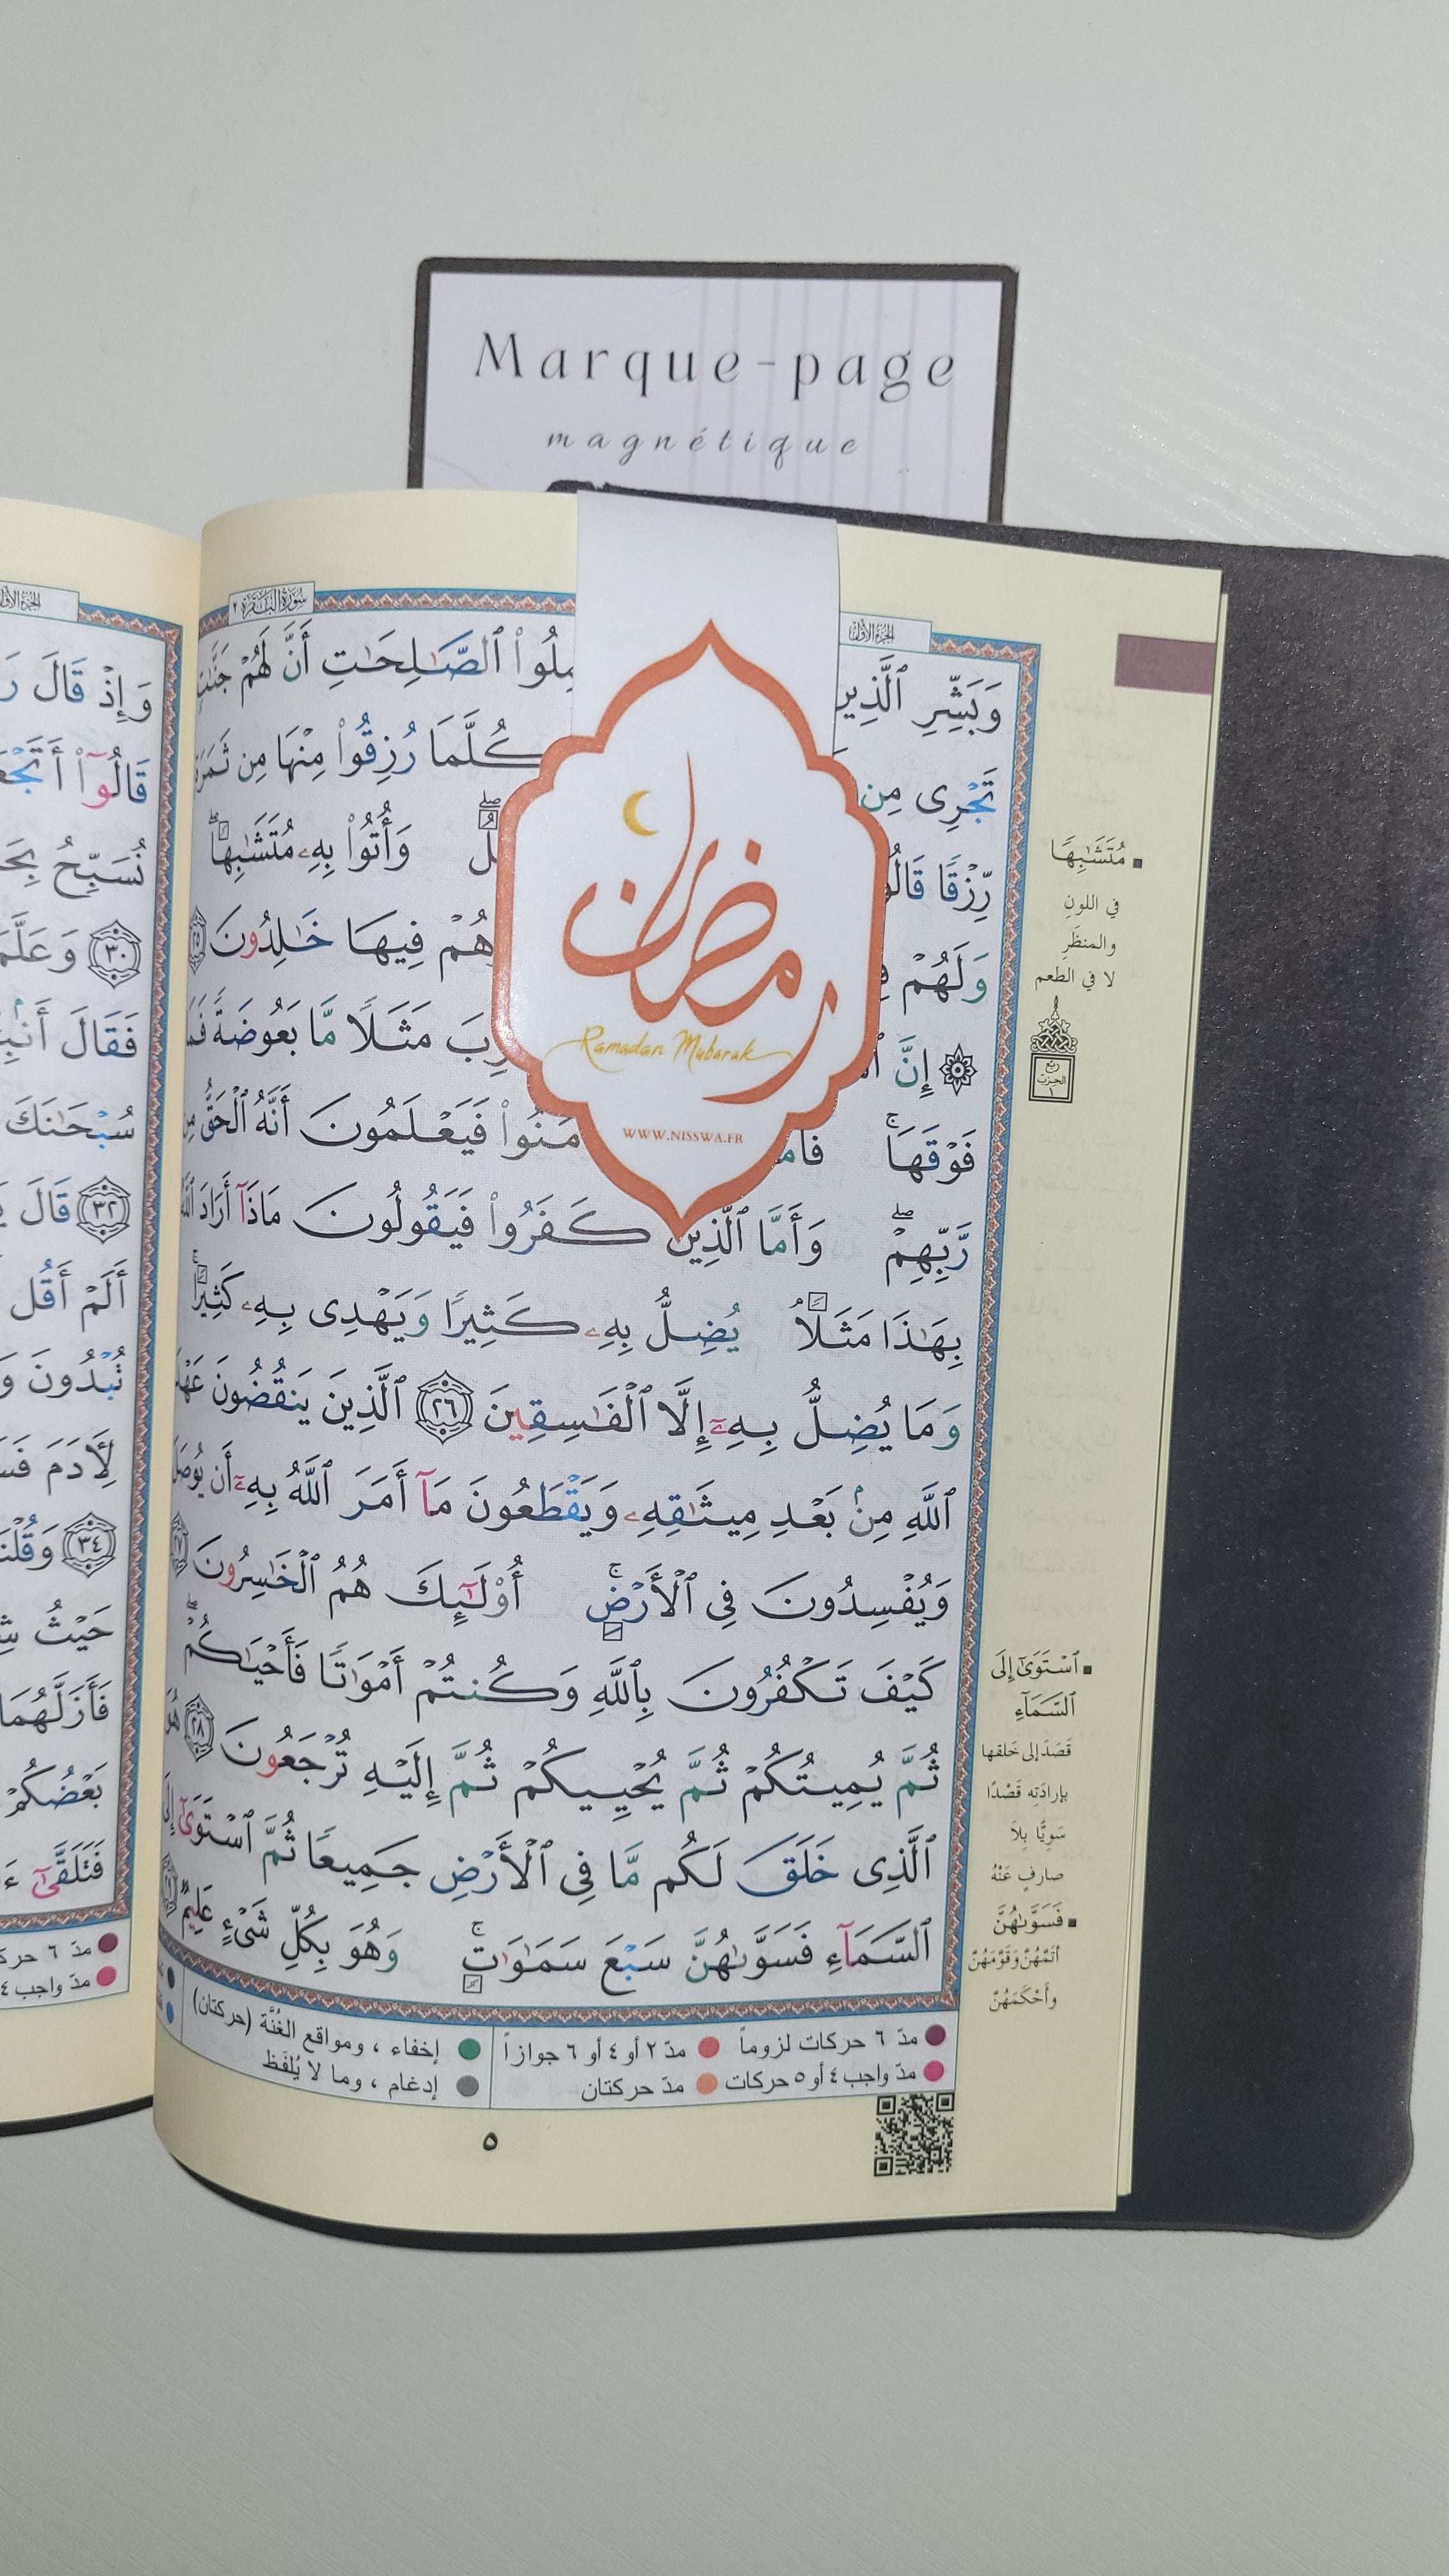 Marque-page
magnétique
الجزء الأول
سورة البقرة ٢
رمضان
Ramadan Mubarak
WWW.NISSWA.FR
وَبَشِّرِ ٱلَّذِينَ ٱلصَّـٰلِحَـٰتِ أَنَّ لَهُمْ جَنَّـٰتٍ
تَجْرِى مِن كُلَّمَا رُزِقُوا۟ مِنْهَا مِن ثَمَرَةٍ
رِّزْقًا قَالُوا۟ وَأُتُوا۟ بِهِۦ مُتَشَـٰبِهًا ۖ
وَلَهُمْ هُمْ فِيهَا خَـٰلِدُونَ ٢٥
۞ إِنَّ مَثَلًا مَّا بَعُوضَةً فَمَا
فَوْقَهَا ۚ فَيَعْلَمُونَ أَنَّهُ ٱلْحَقُّ مِن
رَّبِّهِمْ ۖ وَأَمَّا ٱلَّذِينَ كَفَرُوا۟ فَيَقُولُونَ مَاذَآ أَرَادَ ٱللَّهُ
بِهَـٰذَا مَثَلًا ۘ يُضِلُّ بِهِۦ كَثِيرًا وَيَهْدِى بِهِۦ كَثِيرًا ۚ
وَمَا يُضِلُّ بِهِۦٓ إِلَّا ٱلْفَـٰسِقِينَ ٢٦ ٱلَّذِينَ يَنقُضُونَ عَهْدَ
ٱللَّهِ مِنۢ بَعْدِ مِيثَـٰقِهِۦ وَيَقْطَعُونَ مَآ أَمَرَ ٱللَّهُ بِهِۦٓ أَن يُوصَلَ
وَيُفْسِدُونَ فِى ٱلْأَرْضِ ۚ أُو۟لَـٰٓئِكَ هُمُ ٱلْخَـٰسِرُونَ ٢٧
كَيْفَ تَكْفُرُونَ بِٱللَّهِ وَكُنتُمْ أَمْوَٰتًا فَأَحْيَـٰكُمْ ۖ
ثُمَّ يُمِيتُكُمْ ثُمَّ يُحْيِيكُمْ ثُمَّ إِلَيْهِ تُرْجَعُونَ ٢٨ هُوَ
ٱلَّذِى خَلَقَ لَكُم مَّا فِى ٱلْأَرْضِ جَمِيعًا ثُمَّ ٱسْتَوَىٰٓ إِلَى
ٱلسَّمَآءِ فَسَوَّىٰهُنَّ سَبْعَ سَمَـٰوَٰتٍ ۚ وَهُوَ بِكُلِّ شَىْءٍ عَلِيمٌ ٢٩
مُتَشَـٰبِهًا
في اللونِ
والمنظَرِ
لا في الطعم
ربع
الحزب
١
ٱسْتَوَىٰٓ إِلَى
ٱلسَّمَآءِ
قَصَدَ إلى خَلقها
بإرادَتِه قَصْدًا
سَوِيًّا بِلاَ
صارفٍ عَنْهُ
فَسَوَّىٰهُنَّ
أتَمَّهُنَّ وَقَوَّمَهُنَّ
وأَحْكَمَهُنَّ
مدّ ٦ حركات لزوماً
مدّ ٢ أو ٤ أو ٦ جوازاً
إخفاء ، ومواقع الغُنَّة (حركتان)
مدّ واجب ٤ أو ٥ حركات
مدّ حركتان
إدغام ، وما لا يُلفَظ
٥
الجزء الأول
وَإِذْ قَالَ
قَالُوٓا۟ أَتَجْعَلُ
نُسَبِّحُ
٣٠ وَعَلَّمَ
فَقَالَ
سُبْحَـٰنَكَ
٣٢ قَالَ
أَلَمْ أَقُل
تُبْدُونَ
لِأَدَمَ
٣٤ وَقُلْنَا
حَيْثُ
فَأَزَلَّهُمَا
بَعْضُكُمْ
فَتَلَقَّىٰٓ
مدّ ٦
مدّ واجب ٤